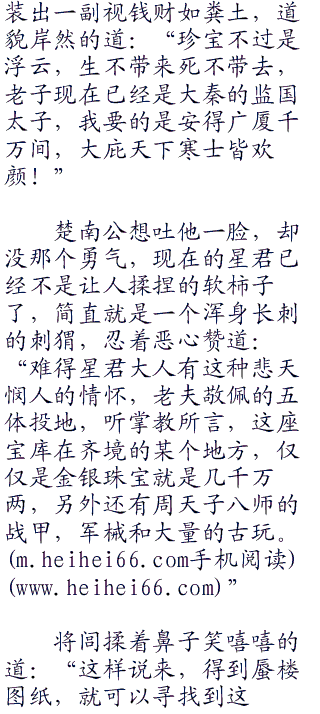 装出一副视钱财如粪土，道
貌岸然的道：“珍宝不过是
浮云，生不带来死不带去，
老子现在已经是大秦的监国
太子，我要的是安得广厦千
万间，大庇天下寒士皆欢
颜！”
楚南公想吐他一脸，却
没那个勇气，现在的星君已
经不是让人揉捏的软柿子
了，简直就是一个浑身长刺
的刺猬，忍着恶心赞道：
“难得星君大人有这种悲天
悯人的情怀，老夫敬佩的五
体投地，听掌教所言，这座
宝库在齐境的某个地方，仅
仅是金银珠宝就是几千万
两，另外还有周天子八师的
战甲，军械和大量的古玩。
(m.heihei66.com手机阅读)
(www.heihei66.com)”
将闾揉着鼻子笑嘻嘻的
道：“这样说来，得到蜃楼
图纸，就可以寻找到这